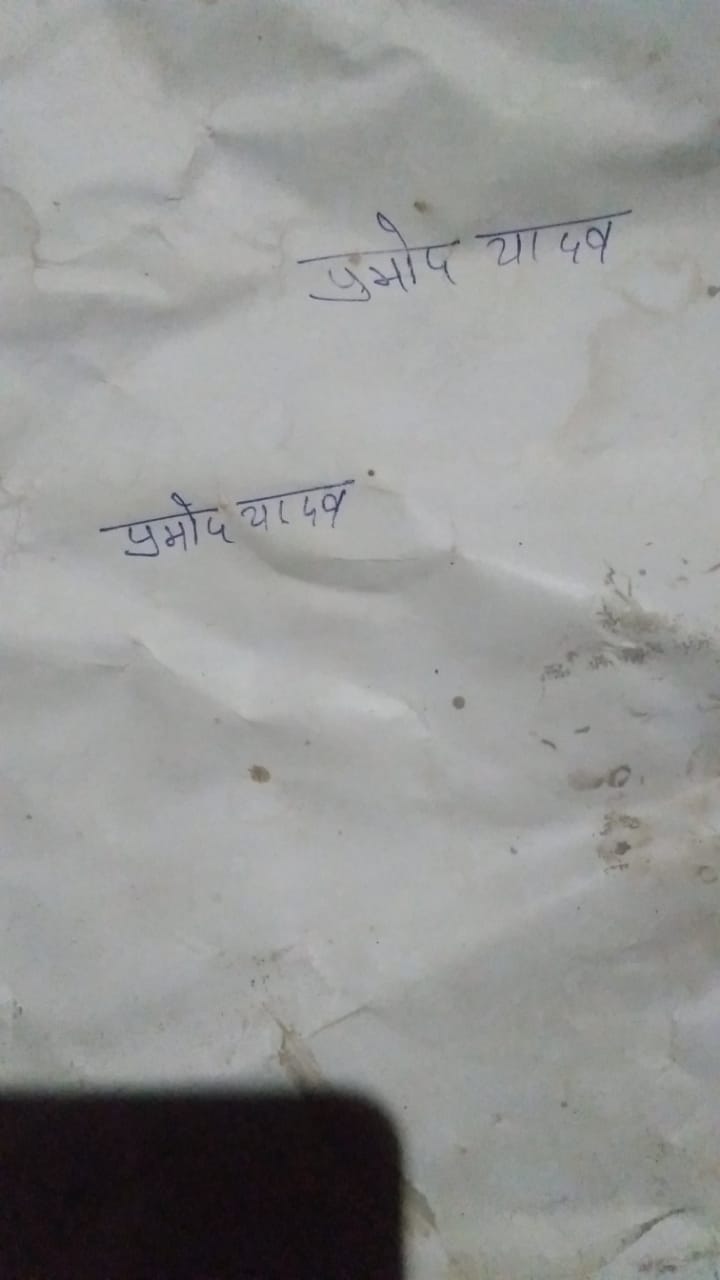 प्रमोद यादव
प्रमोद यादव